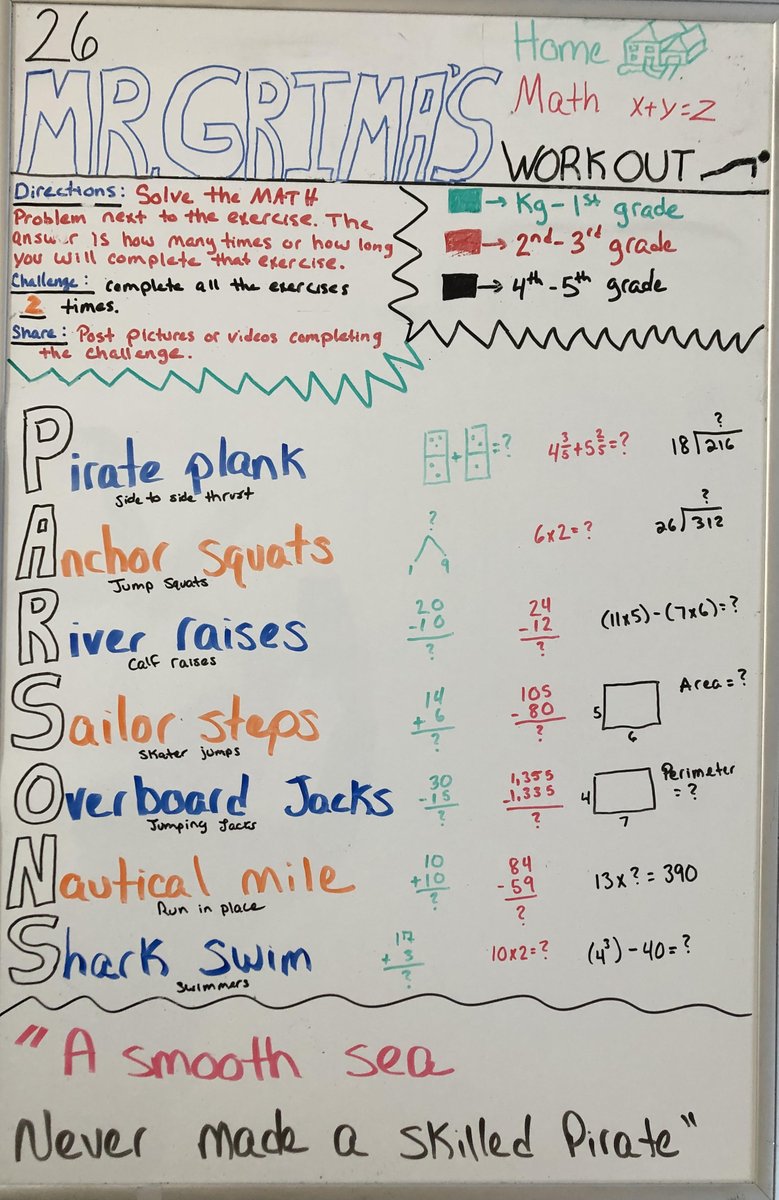 26
Home
MR. GRIMA'S
Math x+y=z
WORKOUT
Directions: Solve the MATH
Problem next to the exercise. The
answer is how many times or how long
you will complete that exercise.
Challenge: complete all the exercises
2 times.
Share: Post pictures or videos completing
the challenge.
→ Kg-1st grade
→ 2nd-3rd grade
→ 4th-5th grade
Pirate plank
side to side thrust
+ =?
4 3/5 + 5 2/5 = ?
?
18)216
Anchor squats
Jump Squats
?
1 9
6x2=?
?
26)312
River raises
Calf raises
20
-10
?
24
-12
?
(11x5)-(7x6)=?
Sailor steps
Skater jumps
14
+ 6
?
105
- 80
?
5
6
Area = ?
Overboard Jacks
Jumping Jacks
30
-15
?
1,355
-1,335
?
4
7
Perimeter
= ?
Nautical mile
Run in place
10
+10
?
84
-59
?
13 x ? = 390
Shark swim
Swimmers
17
+ 3
?
10x2=?
(4³)-40=?
"A smooth sea
Never made a skilled Pirate"